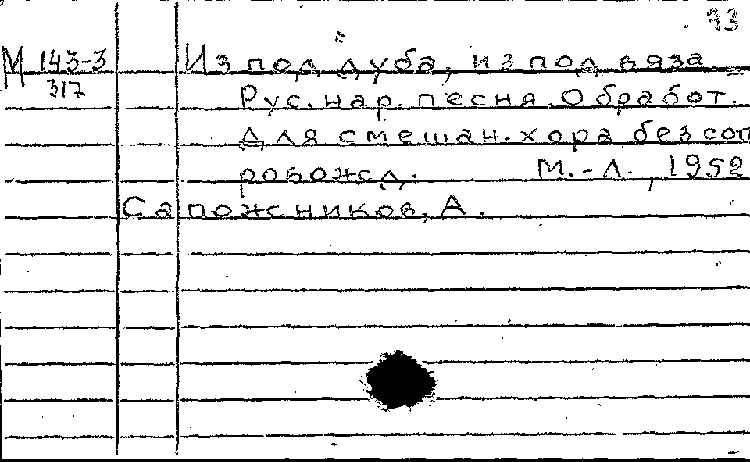 93
М 143-3 Из под дуба, из под вяза
317 Рус. нар. песня. Обработ.
для смешан. хора без соп
ровожд. М.-Л., 1952
Сапожников, А.